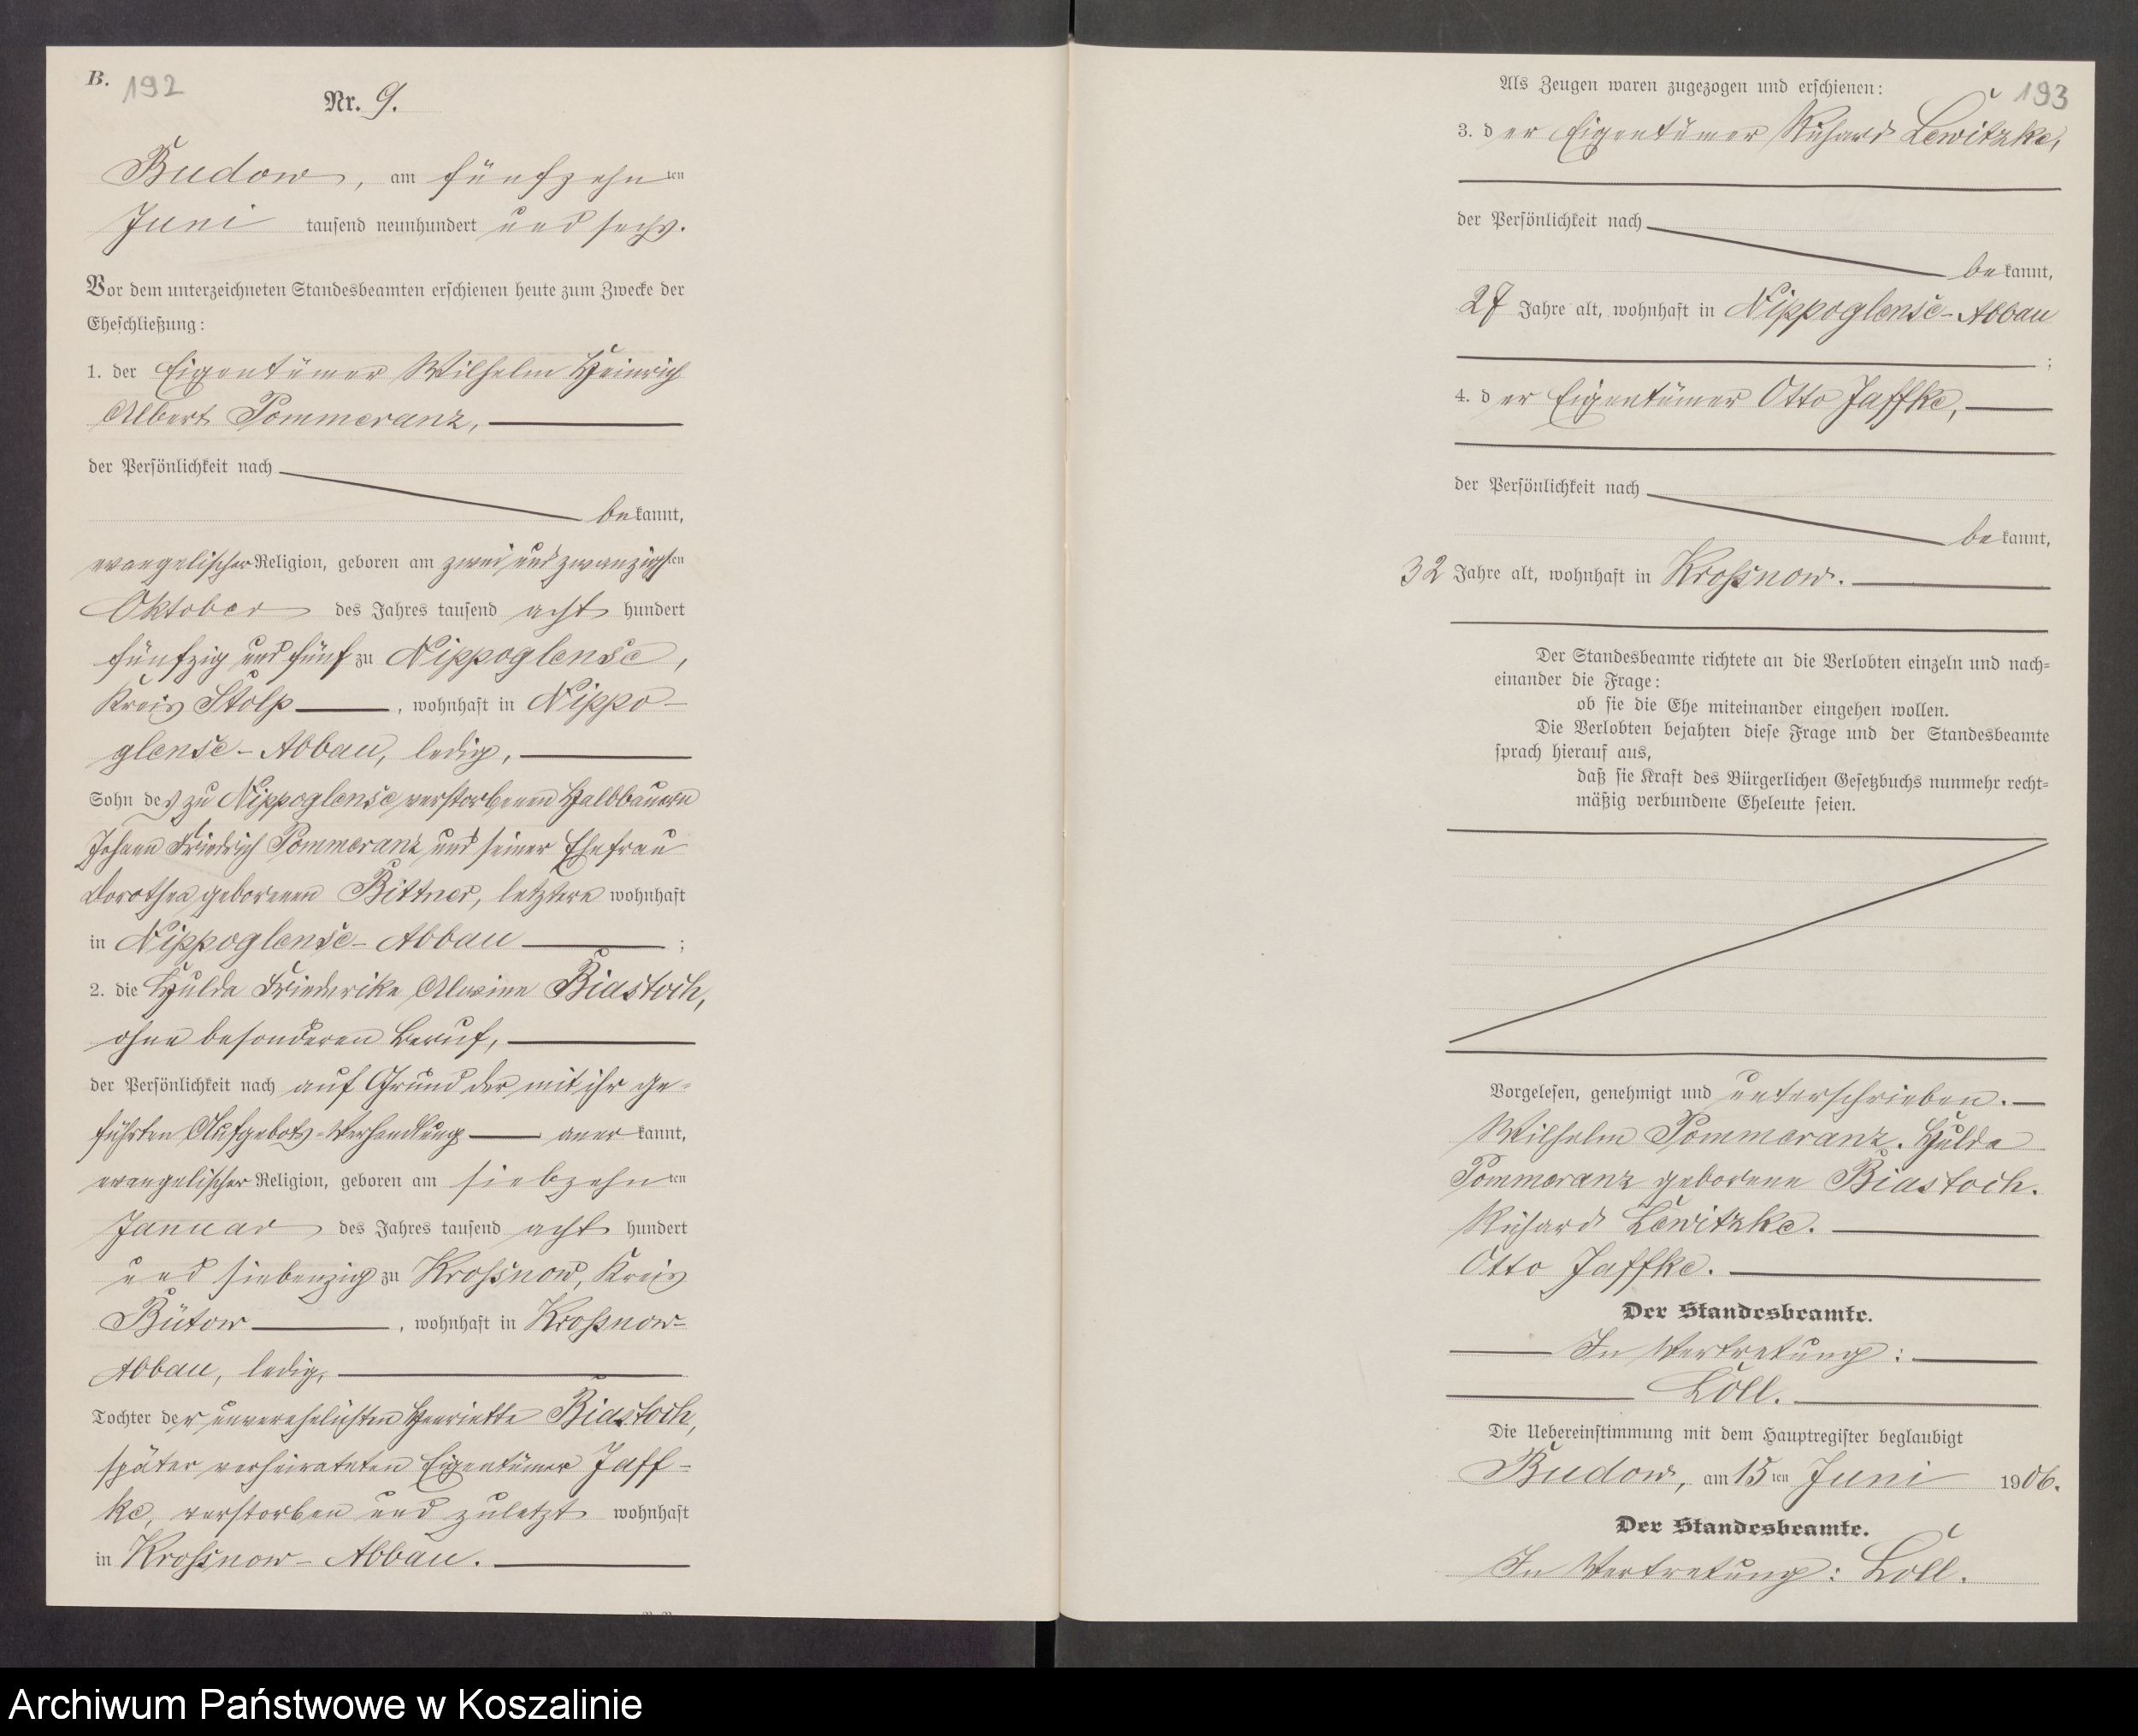 B. 192
Nr. 9.
Budow, am fünfzehnten
Juni tausend neunhundert und sechs.
Vor dem unterzeichneten Standesbeamten erschienen heute zum Zwecke der
Eheschließung:
1. der Eigentümer Wilhelm Heinrich
Albert Pommeranz,
der Persönlichkeit nach
bekannt,
evangelischer Religion, geboren am zwei und zwanzigsten
Oktober des Jahres tausend acht hundert
fünfzig und fünf zu Nippoglense,
Kreis Stolp, wohnhaft in Nippo-
glense-Abbau, ledig,
Sohn des zu Nippoglense verstorbenen Halbbauern
Johann Friedrich Pommeranz und seiner Ehefrau
Dorothea geborenen Bittner, letztere wohnhaft
in Nippoglense-Abbau ;
2. die Hulda Friederike Alwine Biastoch,
ohne besonderen Beruf,
der Persönlichkeit nach auf Grund der mit ihr ge-
führten Aufgebots-Verhandlung anerkannt,
evangelischer Religion, geboren am siebzehnten
Januar des Jahres tausend acht hundert
und siebenzig zu Kroßnow, Kreis
Bütow, wohnhaft in Kroßnow-
Abbau, ledig,
Tochter der unverehelichten Henriette Biastoch,
später verheirateten Eigentümer Jaff-
ke, verstorben und zuletzt wohnhaft
in Kroßnow-Abbau.
193
Als Zeugen waren zugezogen und erschienen:
3. der Eigentümer Richard Lewitzke,
der Persönlichkeit nach
bekannt,
27 Jahre alt, wohnhaft in Nippoglense-Abbau
;
4. der Eigentümer Otto Jaffke,
der Persönlichkeit nach
bekannt,
32 Jahre alt, wohnhaft in Kroßnow.
Der Standesbeamte richtete an die Verlobten einzeln und nach-
einander die Frage:
ob sie die Ehe miteinander eingehen wollen.
Die Verlobten bejahten diese Frage und der Standesbeamte
sprach hierauf aus,
daß sie Kraft des Bürgerlichen Gesetzbuchs nunmehr recht-
mäßig verbundene Eheleute seien.
Vorgelesen, genehmigt und unterschrieben.
Wilhelm Pommeranz. Hulda
Pommeranz geborene Biastoch.
Richard Lewitzke.
Otto Jaffke.
Der Standesbeamte.
In Vertretung:
Löll.
Die Uebereinstimmung mit dem Hauptregister beglaubigt
Budow, am 15ten Juni 1906.
Der Standesbeamte.
In Vertretung: Löll.
Archiwum Państwowe w Koszalinie